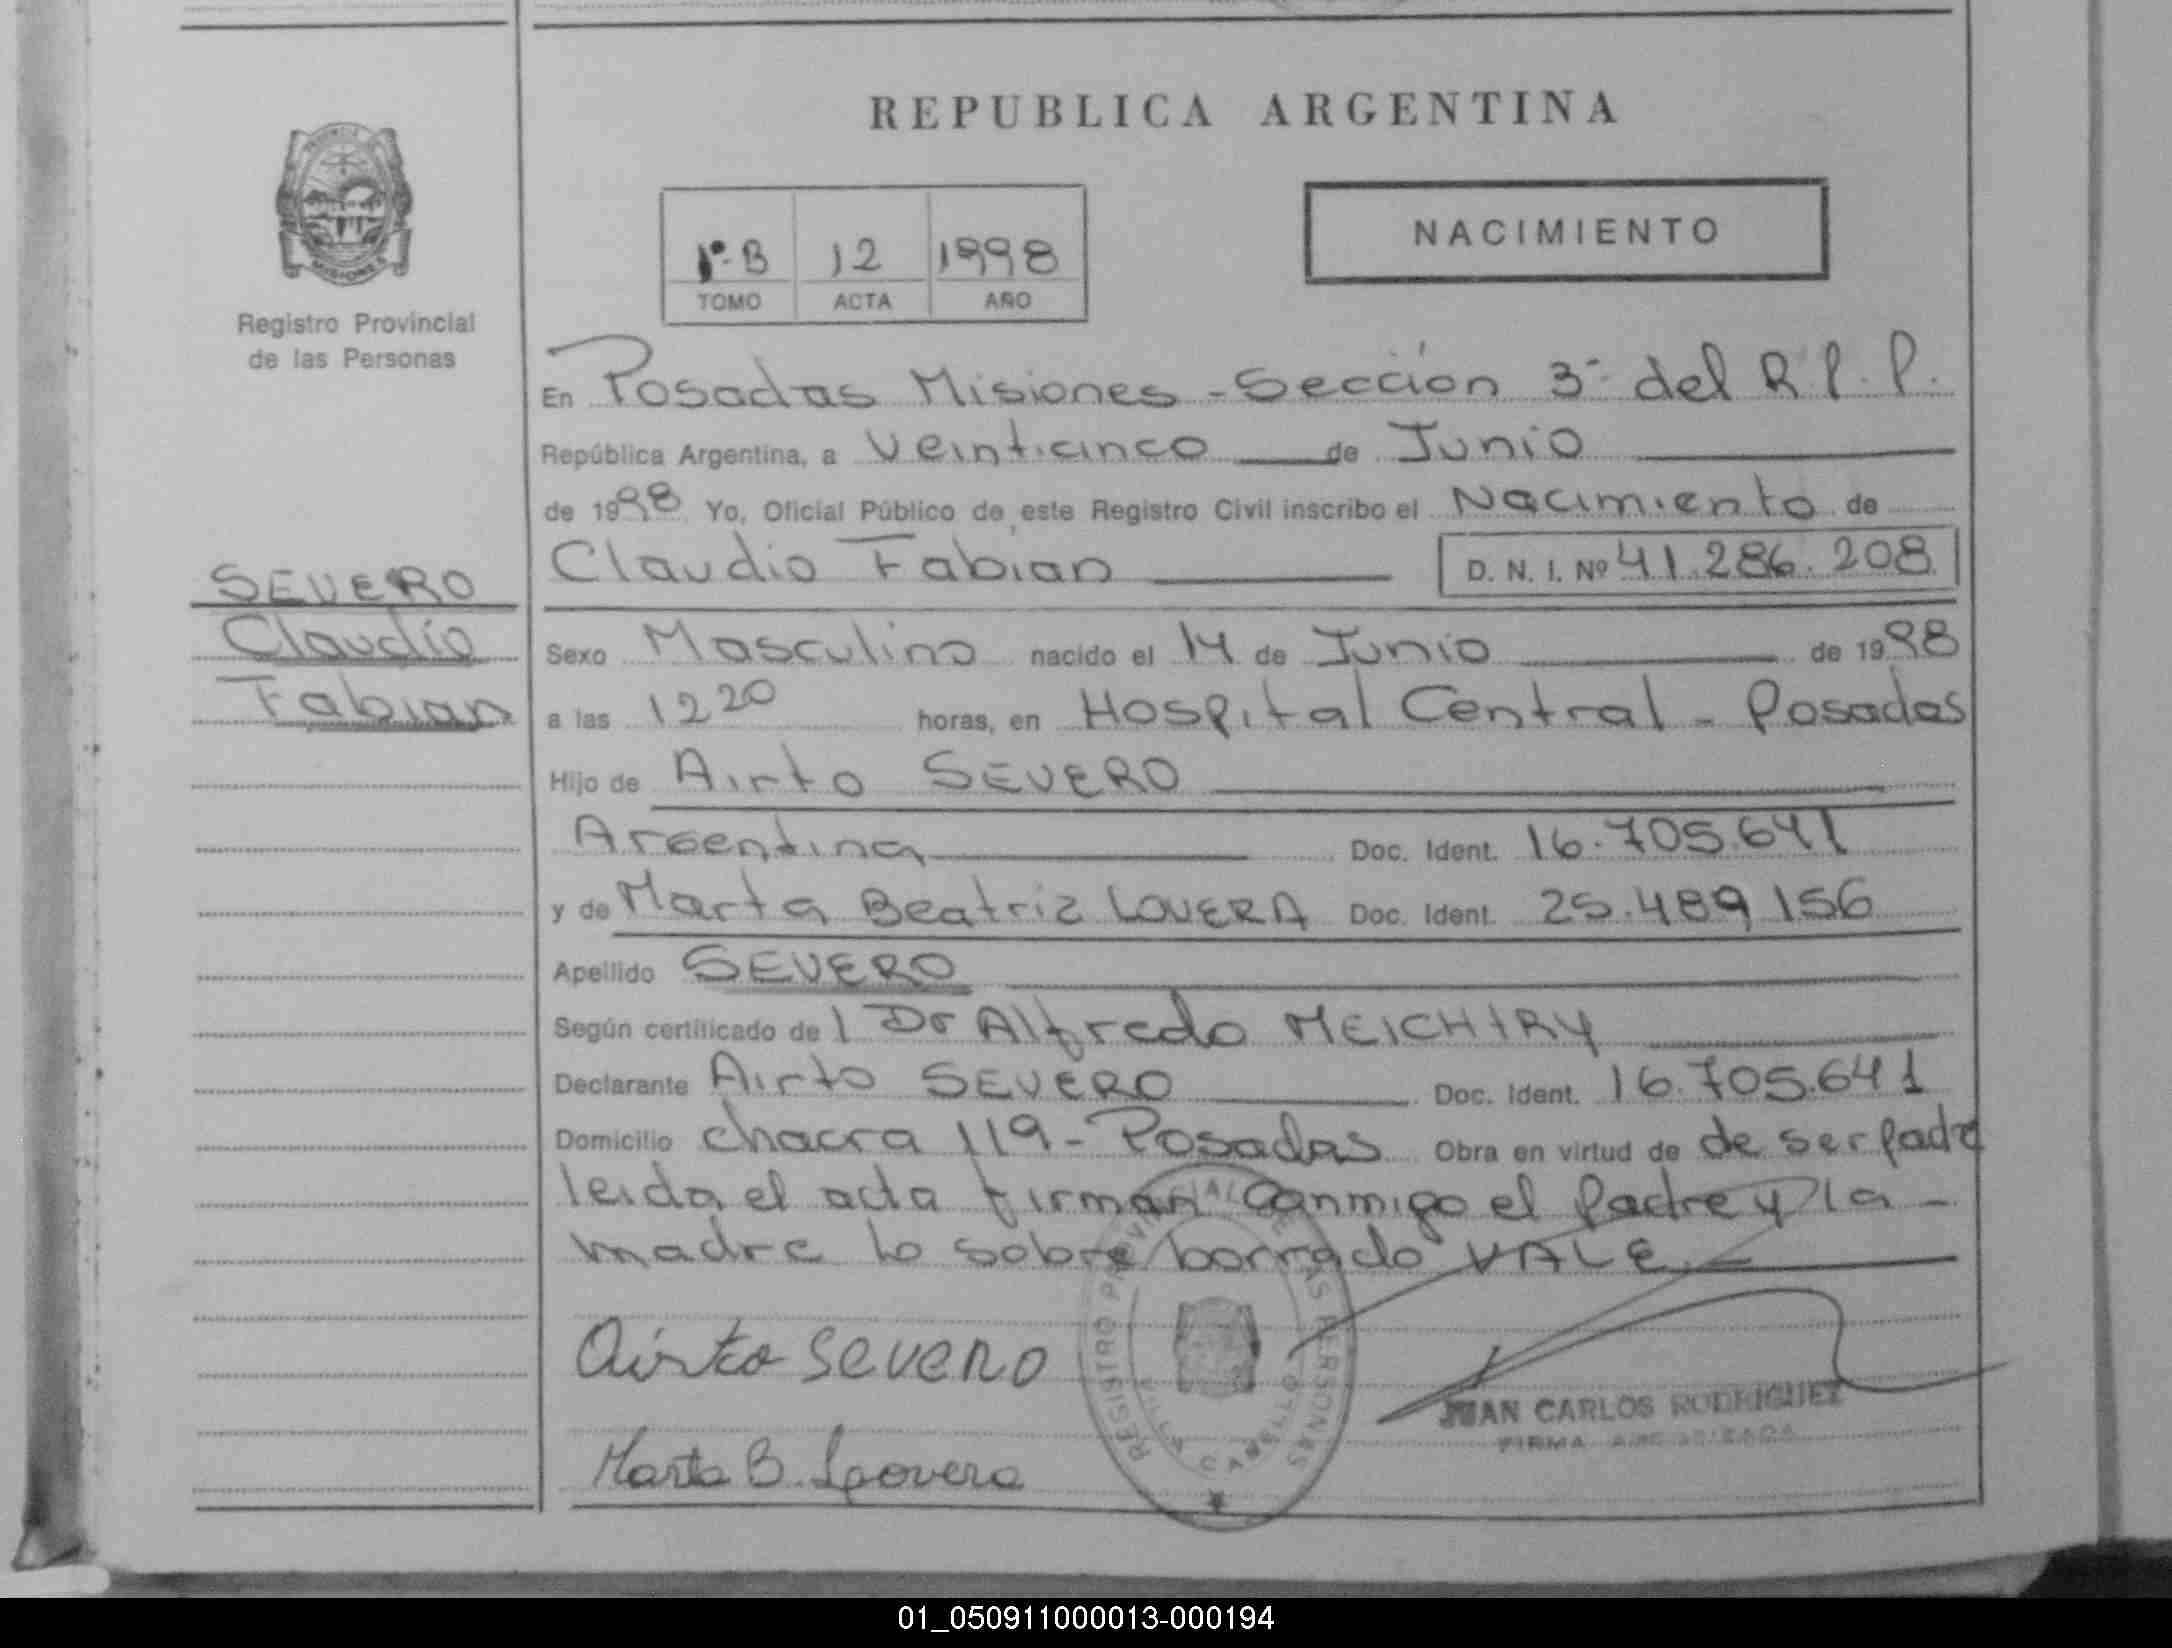 REPUBLICA ARGENTINA
NACIMIENTO
1º-B 12 1998
TOMO ACTA AÑO
MISIONES
Registro Provincial
de las Personas
En Posadas Misiones - Sección 3ª del R.P.P.
República Argentina, a Veinticinco de Junio
de 1998 Yo, Oficial Público de este Registro Civil inscribo el Nacimiento de
Claudio Fabian D. N. I. Nº 41.286.208
SEVERO
Claudio
Fabian
Sexo Masculino nacido el 14 de Junio de 1998
a las 12 20 horas, en Hospital Central - Posadas
Hijo de Airto SEVERO
Argentina Doc. Ident. 16.705.641
y de Marta Beatriz LOVERA Doc. Ident. 25.489 156
Apellido SEVERO
Según certificado de 1 Dr Alfredo MEICHTRY
Declarante Airto SEVERO Doc. Ident. 16.705.641
Domicilio chacra 119 - Posadas Obra en virtud de de ser padre
leida el acta firman conmigo el padre y la -
madre lo sobre borrado VALE -
Airto Severo
Marta B. Lovera
REGISTRO PROVINCIAL DE LAS PERSONAS
VILLA CABELLO
JUAN CARLOS RODRIGUEZ
FIRMA AUTORIZADA
01_050911000013-000194